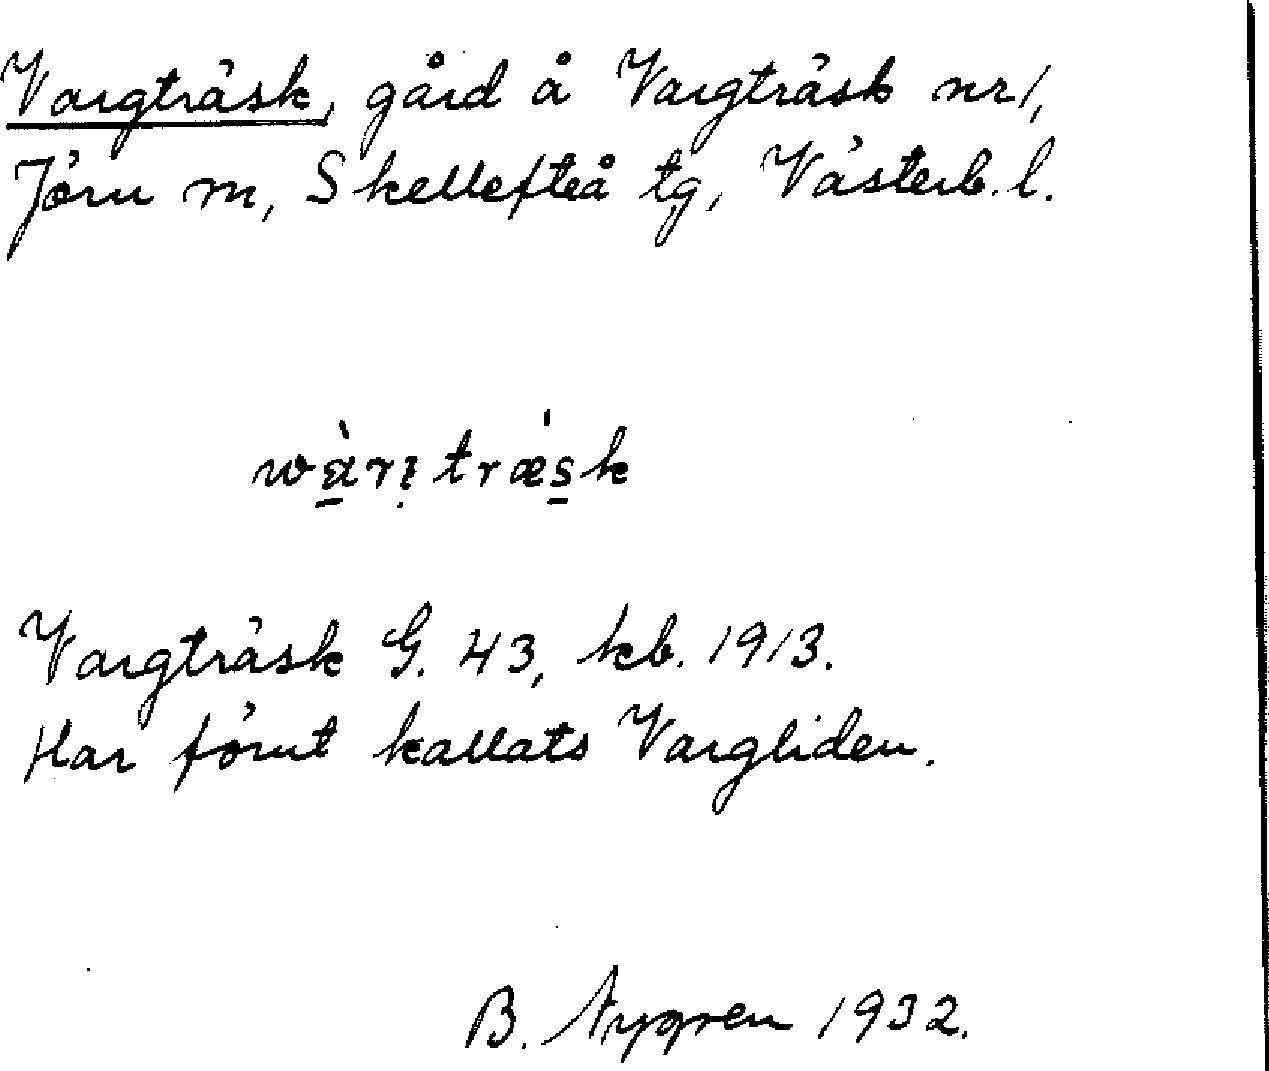 Vargträsk, gård å Vargträsk nr 1,
Jörn sn, Skellefteå tg, Västerb. l.
wàrı̣ trǽsk
Vargträsk G. 43, kb. 1913.
Har förut kallats Vargliden.
B. Nygren 1932.